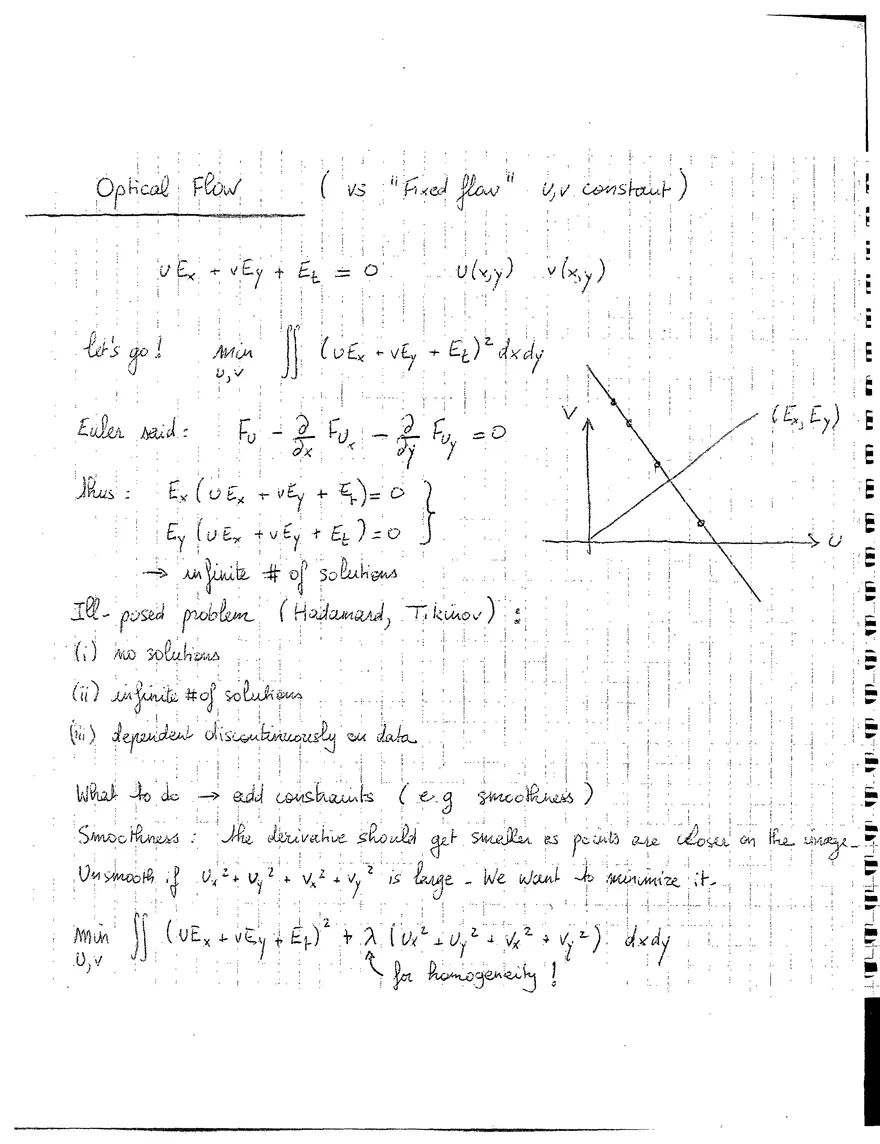 Optical Flow ( vs "Fixed flow" u,v constant )
uE_x + vE_y + E_t = 0 u(x,y) v(x,y)
let's go! min_{u,v} ∬ (uE_x + vE_y + E_t)² dxdy
Euler said : F_u - ∂/∂x F_{u_x} - ∂/∂y F_{u_y} = 0
V
(E_x, E_y)
thus : E_x (uE_x + vE_y + E_t) = 0
E_y (uE_x + vE_y + E_t) = 0 }
U
→ infinite # of solutions
Ill-posed problem (Hadamard, Tikinov) :
(i) no solutions
(ii) infinite # of solutions
(iii) dependent discontinuously on data
What to do → add constraints ( e.g smoothness )
Smoothness : the derivative should get smaller as points are closer on the image.
Unsmooth if u_x² + u_y² + v_x² + v_y² is large - We want to minimize it.
min_{u,v} ∬ (uE_x + vE_y + E_t)² + λ (u_x² + u_y² + v_x² + v_y²) dxdy
for homogeneity !